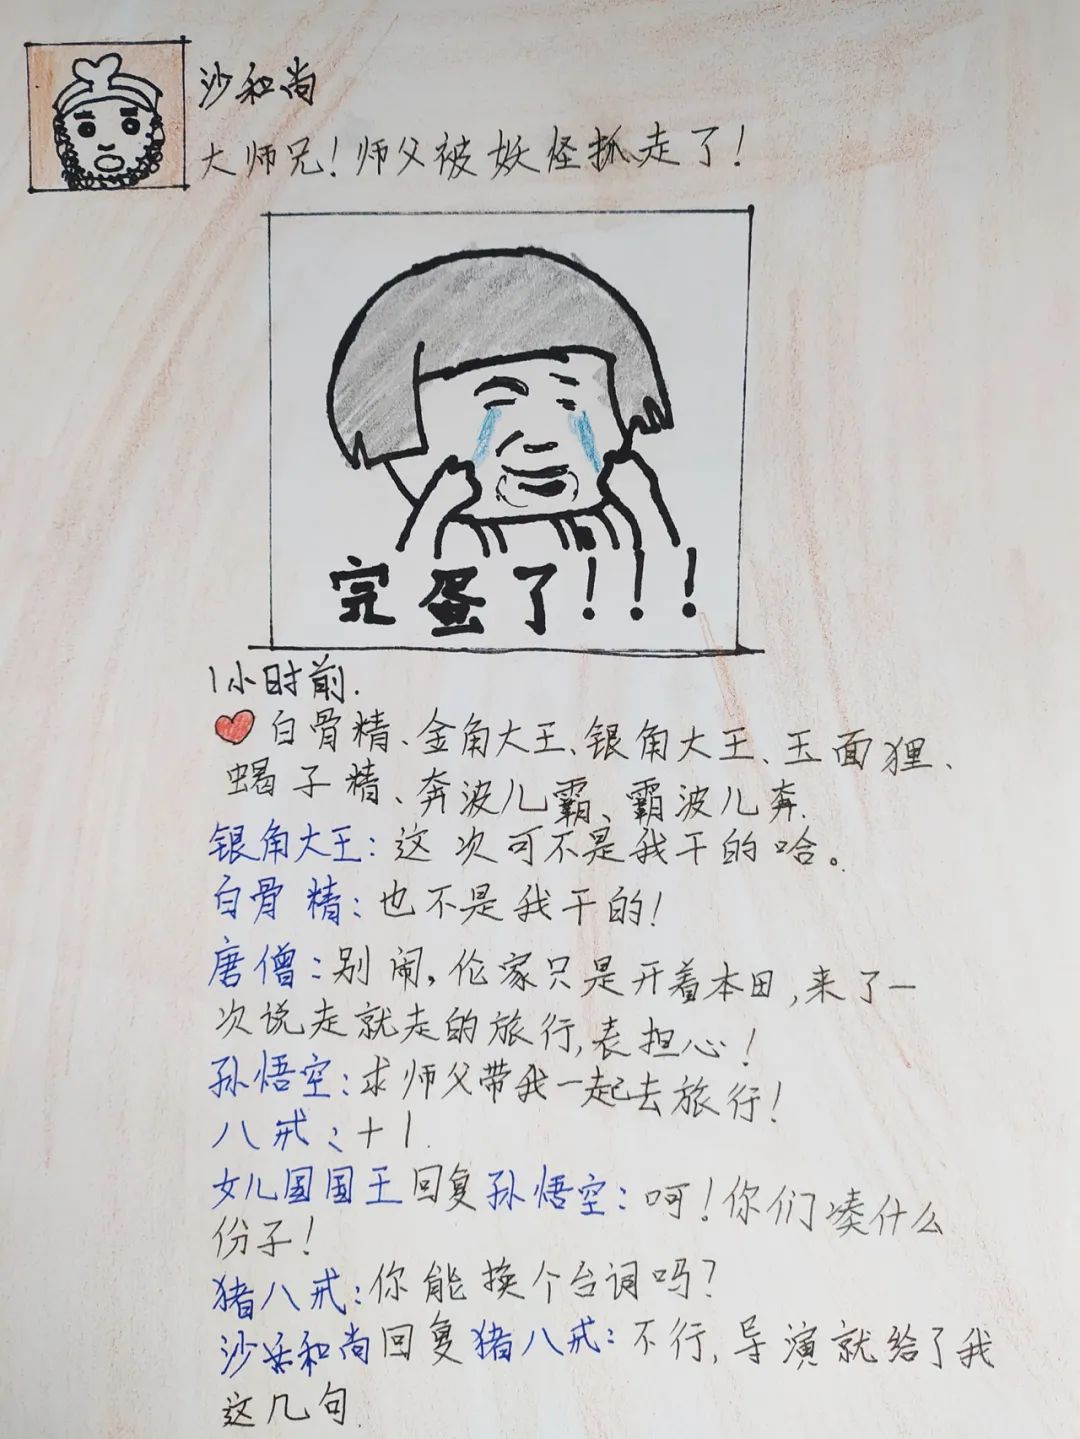 沙和尚
大师兄!师父被妖怪抓走了!
完蛋了!!!
1小时前.
白骨精、金角大王、银角大王、玉面狸、
蝎子精、奔波儿霸、霸波儿奔.
银角大王:这次可不是我干的哈。
白骨精:也不是我干的!
唐僧:别闹,伦家只是开着本田,来了一
次说走就走的旅行,表担心!
孙悟空:求师父带我一起去旅行!
八戒:+1.
女儿国国王回复孙悟空:呵!你们凑什么
份子!
猪八戒:你能换个台词吗?
沙和尚回复猪八戒:不行,导演就给了我
这几句.